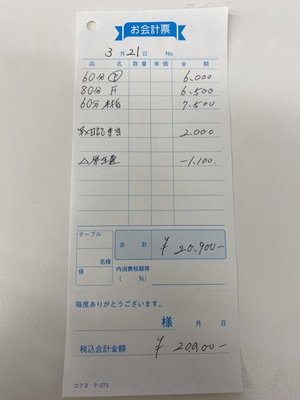 お会計票
3月21日 No.
品 名 数量 単価 金 額
60分 6.000
80分 6.500
60分 7.500
手当 2.000
△厚生費 -1.100.
テーブル
名様
係
合 計 ¥20.900-
内消費税額等
( %)
毎度ありがとうございます。
様 月 日
税込合計金額 ¥20900-
コクヨ テ-273